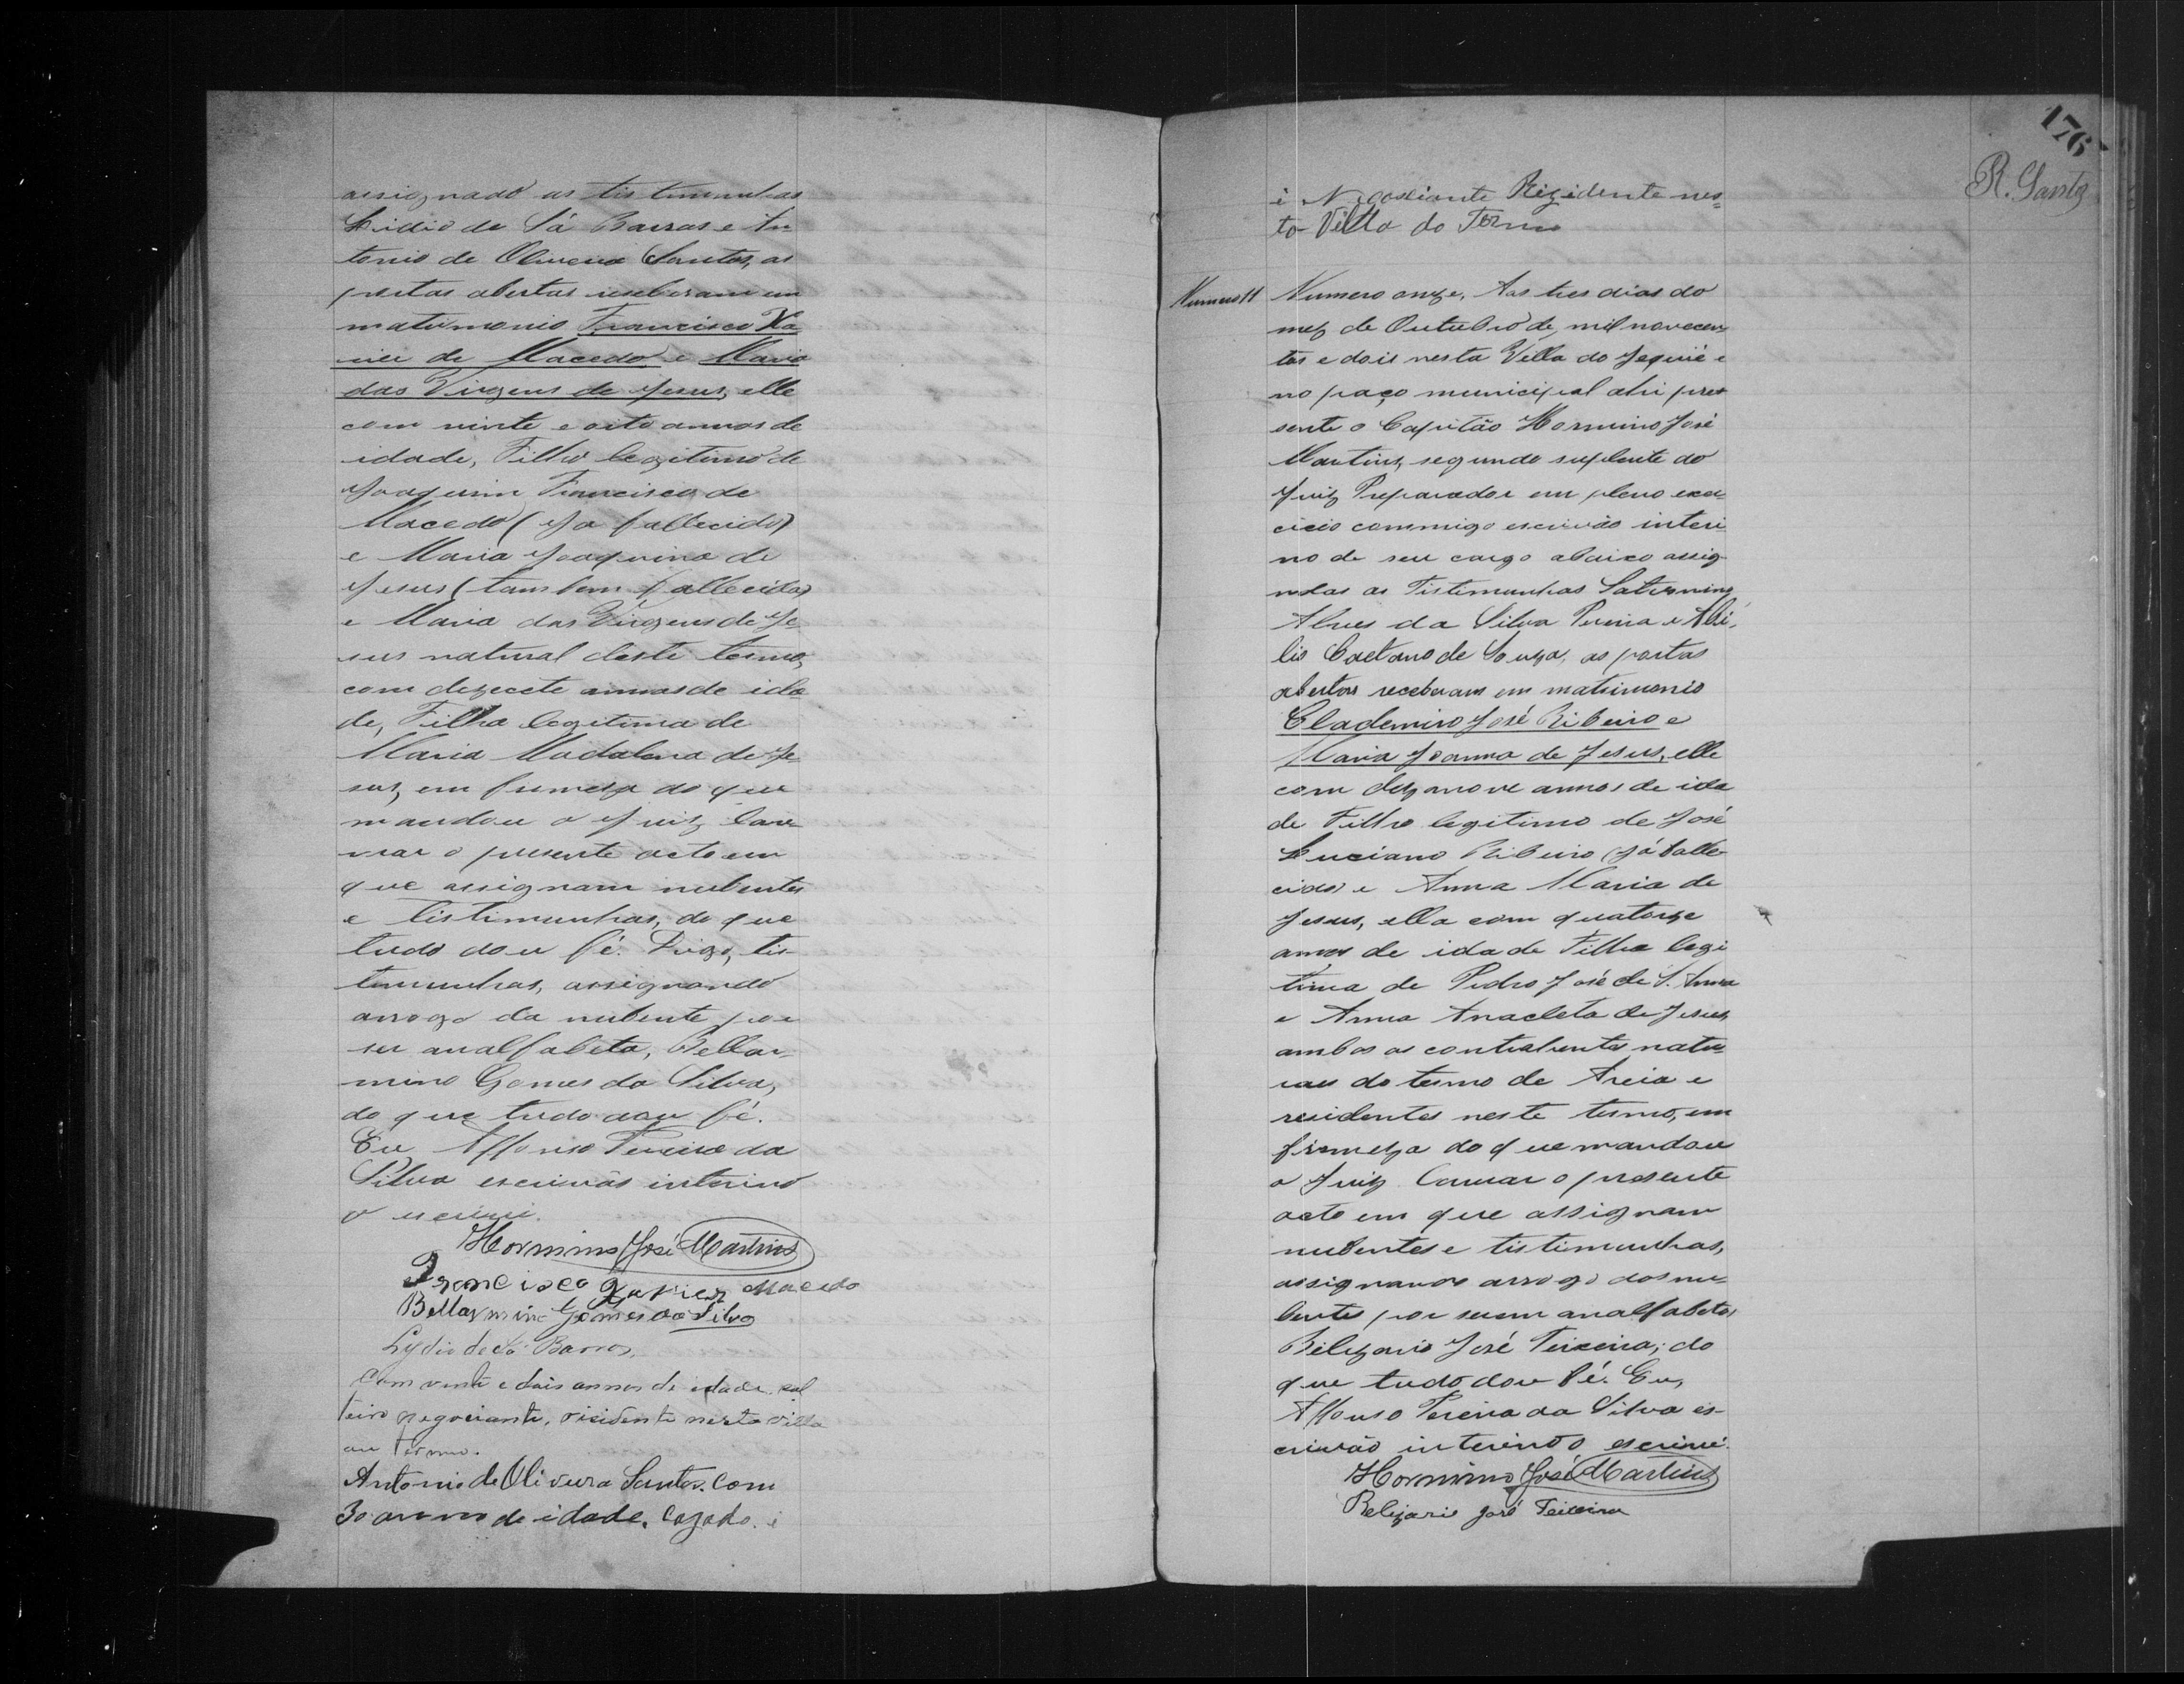 assignado as tistimunhas
Lidio de Sá Barros e An
tonio de Oliveira Santos, as
portas abertas receberam em
matrimonio Francisco Xa
vier de Macedo e Maria
das Virgens de Jesus, elle
com vinte e oito annos de
idade, Filho legitimo de
Joaquim Francisco de
Macedo (Ja fallecido)
e Maria Joaquina de
Jesus (tambem fallecida)
e Maria das Virgens de Je
sus natural deste termo,
com dezecete annos de ida
de, Filha legitima de
Maria Madalena de Je
sus, em firmeza do que
mandou o Juiz lavr
rar o presente acto em
que assignam nubentes
e tistimunhas, do que
tudo dou fé. Digo, tis-
timunhas, assignando
arrogo da nubente por
ser analfabeta, Bellar-
mino Gomes da Silva,
do que tudo dou fé.
Eu Affonso Pereira da
Silva escrivão interino
o escrivi.
Hormino José Martins
Francisco Xavier Macedo
Bellarmino Gomes da Silva
Lydio de Sá Barros,
Com vinte e dois annos de idade, sol
teiro negociante, risidente nesta villa
Termo.
Antonio de Oliveira Santos. Com
30 annos de idade. Cazado. i
176
R. Santos
i Negosciante Rezidente nes=
ta Villa do Termo
Numero 11
Numero onze, Aos tres dias do
mez de Outubro de mil novecen
tos e dois nesta Villa do Jequié e
no paço municipal ahi pres
sente o Capitão Hormino José
Martins, segundo suplente do
Juiz Preparador em pleno exer
cicio commigo escrivão interi
no de seu cargo abaixo assig
ndas as Tistimunhas Saturnino
Alves da Silva Pereira e Abi-
lio Caetano de Souza, as portas
abertas receberam em matrimonio
Clademiro José Ribeiro e
Maria Joanna de Jesus, elle
com dezanove annos de ida
de Filho legitimo de José
Luciano Ribeiro (já falle-
cido) e Anna Maria de
Jesus, ella com quatorze
annos de idade Filha legi
tima de Pedro José de S. Anna
e Anna Anacleta de Jesus,
ambos os contrahentes natu
raes do termo de Areia e
residentes neste termo, em
firmeza do que mandou
o Juiz lavrar o presente
acto em que assignam
nubentes e tistimunhas,
assignando arrogo dos nu-
bentes por serem analfabetos
Belizario José Teixeira; do
que tudo dou fé. Eu,
Affonso Pereira da Silva es-
crivão interino o escrivi.
Hormino José Martins
Belizario José Teixeira